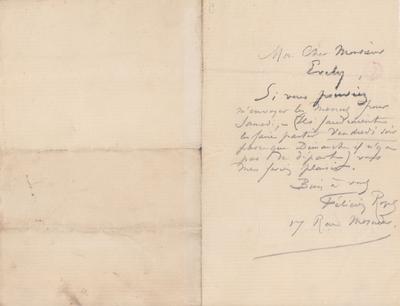 Mon Cher Monsieur
Evely,
Si vous pouviez
m'envoyer les menus pour
Samedi, – (Ils faudrait
les faire partir Vendredi soir
puisque Dimanche il n'y a
pas de départ) vous
me ferez plaisir.
Bien à vous
Félicien Rops
17 Rue